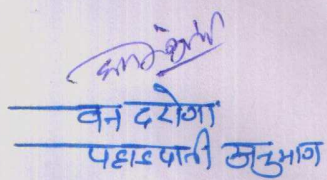 वन दरोगा
पहाडपानी अनुभाग